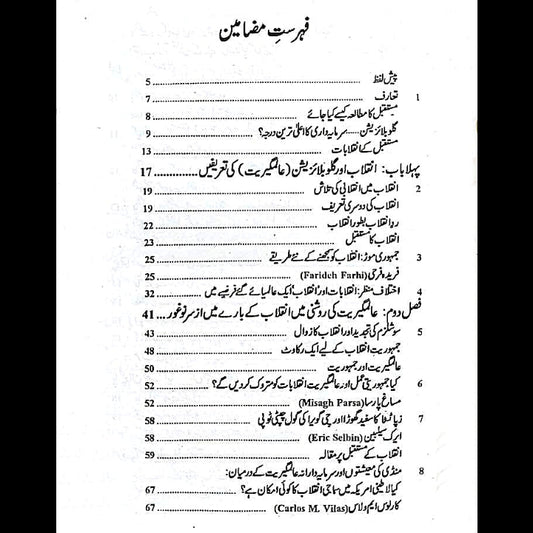 فہرستِ مضامین
پیش لفظ ........ 5
1 تعارف ........ 7
مستقبل کا مطالعہ کیسے کیا جائے ........ 8
گلوبلائزیشن ...... سرمایہ داری کا اعلیٰ ترین درجہ؟ ........ 9
مستقبل کے انقلابات ........ 13
پہلا باب: انقلاب اور گلوبلائزیشن (عالمگیریت) کی تعریفیں ........ 17
2 انقلاب میں انقلابی کی تلاش ........ 19
انقلاب کی دوسری تعریف ........ 19
ردِ انقلاب بطور انقلاب ........ 22
انقلاب کا مستقبل ........ 23
3 جمہوری موڑ: انقلاب کو سمجھنے کے نئے طریقے ........ 25
فریدہ فرحی (Farideh Farhi) ........ 25
4 اختلافِ منظر: انقلابات اور انقلاب ایک عالمیائے گئے فریضے میں ........ 32
فصل دوم: عالمگیریت کی روشنی میں انقلاب کے بارے میں ازسرنو غور ... 41
5 سوشلزم کی تجدید اور انقلاب کا زوال ........ 43
جمہوریتِ انقلاب کے لیے ایک رکاوٹ ........ 48
عالمگیریت اور جمہوریت ........ 50
6 کیا جمہوریتی عمل اور عالمگیریت انقلابات کو متروک کر دیں گے؟ ........ 52
مساغ پارسا (Misagh Parsa) ........ 52
7 زپاٹسٹا کا سفید گھوڑا اور چی گویرا کی گول چپٹی ٹوپی ........ 58
ایرک سیلبین (Eric Selbin) ........ 58
انقلاب کے مستقبل پر مقالہ ........ 59
8 منڈی کی معیشتوں اور سرمایہ دارانہ عالمگیریت کے درمیان:
کیا لاطینی امریکہ میں سماجی انقلاب کا کوئی امکان ہے؟ ........ 67
کارلوس ایم ولاس (Carlos M. Vilas) ........ 67